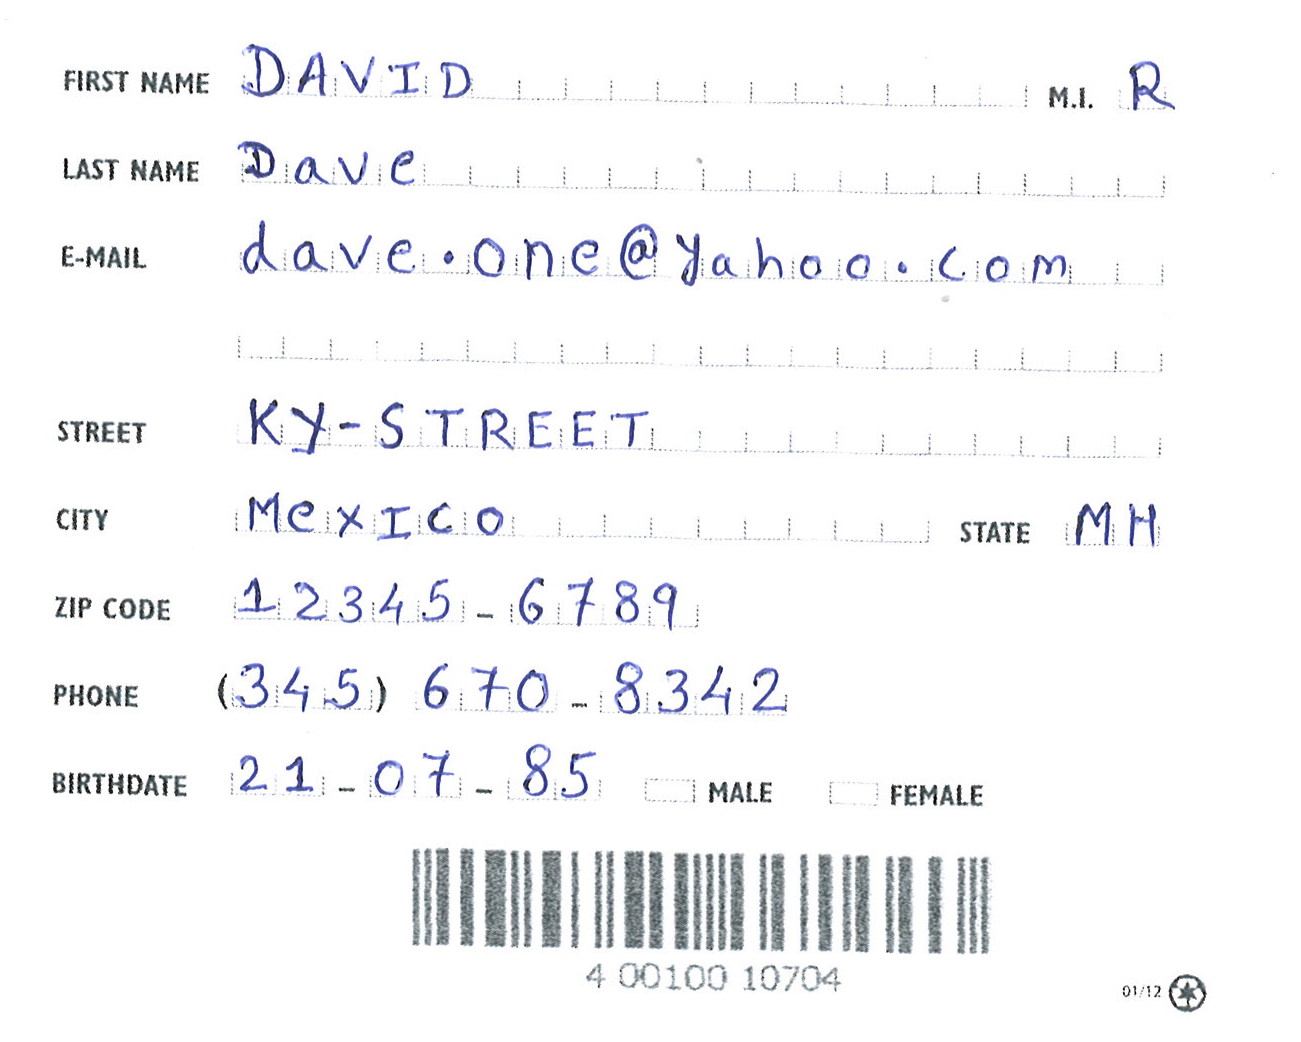 FIRST NAME DAVID M.I. R
LAST NAME Dave
E-MAIL dave.one@yahoo.com
STREET KY-STREET
CITY MexIco STATE MH
ZIP CODE 12345-6789
PHONE (345) 670-8342
BIRTHDATE 21-07-85 MALE FEMALE
4 00100 10704
01/12